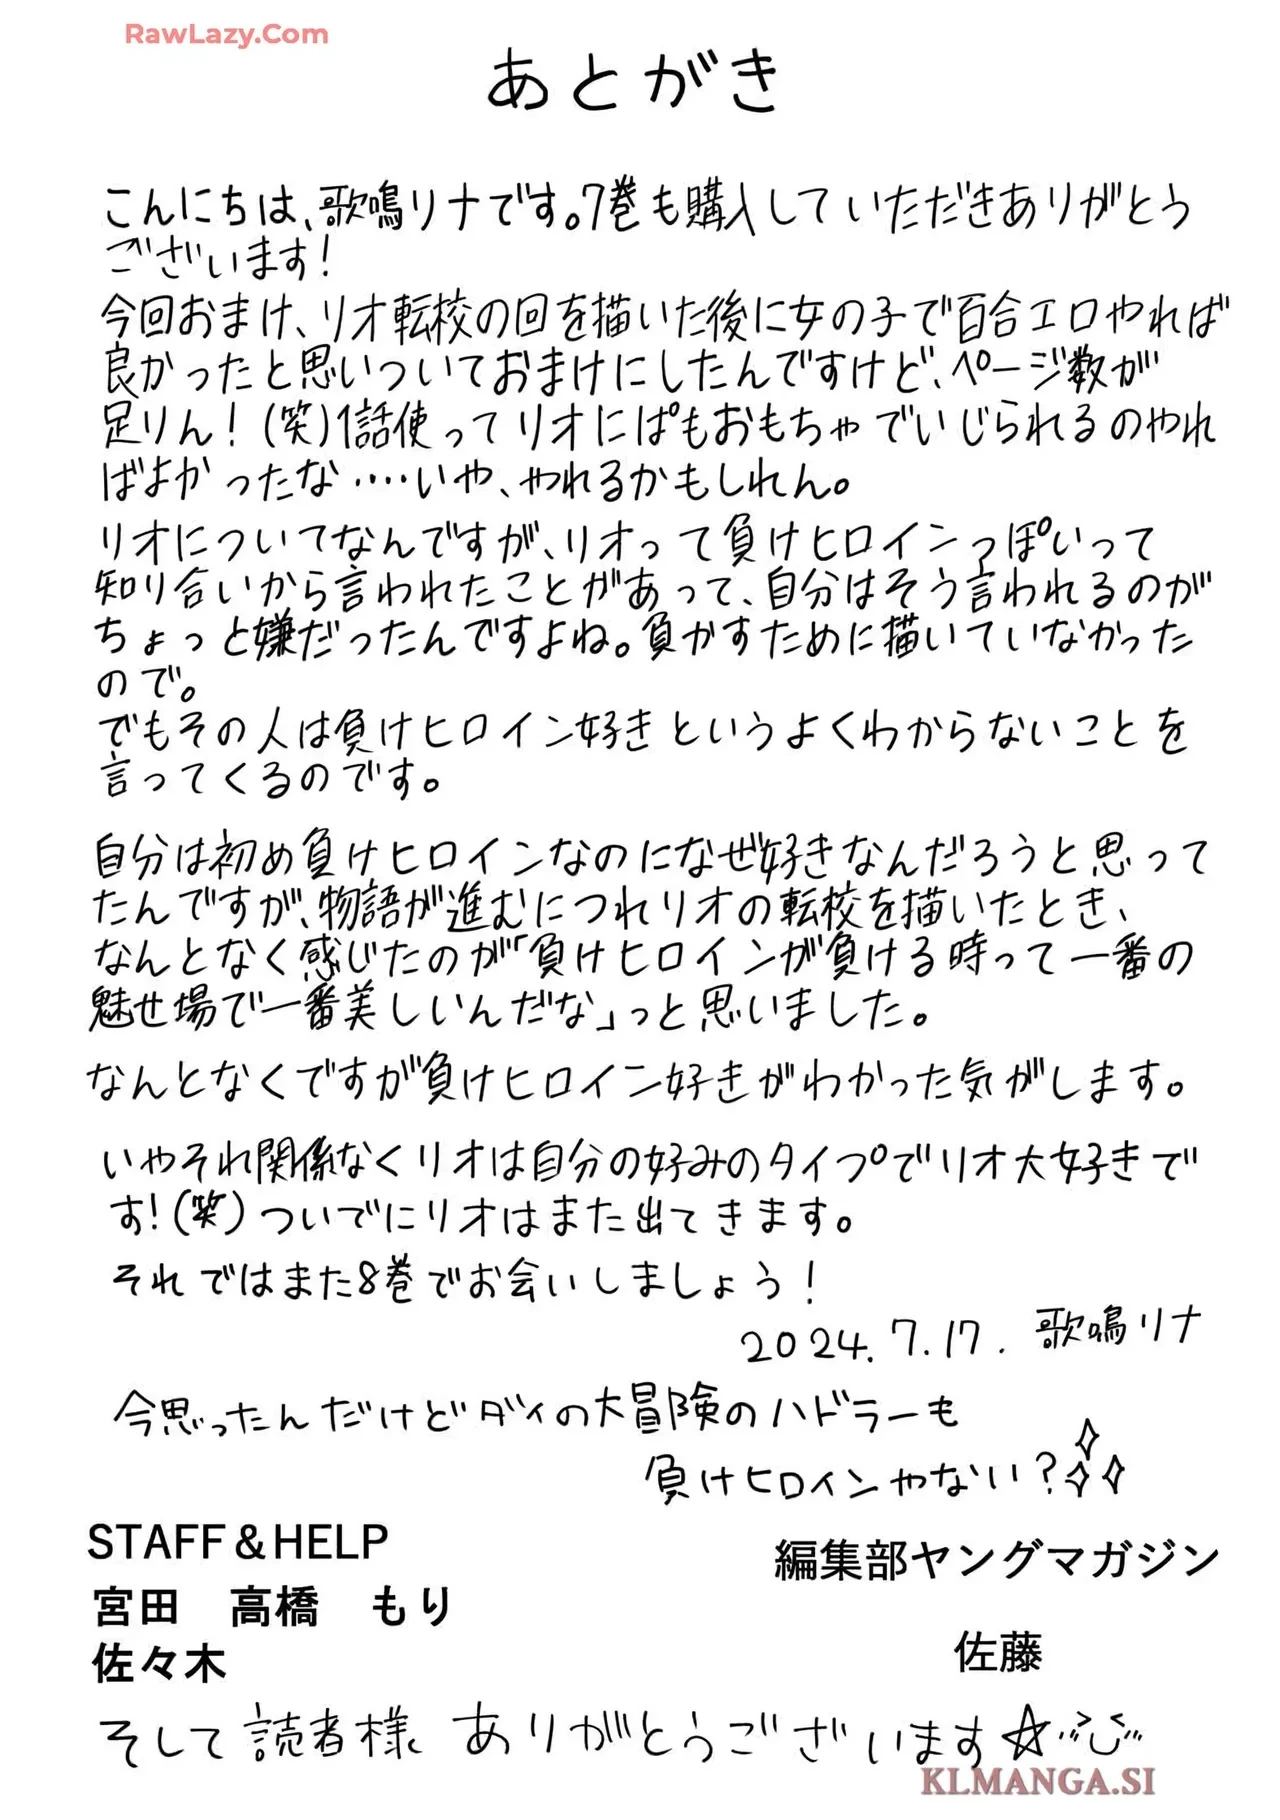 RawLazy.Com
あとがき
こんにちは、歌鳴リナです。7巻も購入していただきありがとう
ございます!
今回おまけ、リオ転校の回を描いた後に女の子で百合エロやれば
良かったと思いついておまけにしたんですけど、ページ数が
足りん!(笑)1話使ってリオにぱもおもちゃでいじられるのやれ
ばよかったな‥‥いや、やれるかもしれん。
リオについてなんですが、リオって負けヒロインっぽいって
知り合いから言われたことがあって、自分はそう言われるのが
ちょっと嫌だったんですよね。負かすために描いていなかった
ので。
でもその人は負けヒロイン好きというよくわからないことを
言ってくるのです。
自分は初め負けヒロインなのになぜ好きなんだろうと思って
たんですが、物語が進むにつれリオの転校を描いたとき、
なんとなく感じたのが「負けヒロインが負ける時って一番の
魅せ場で一番美しいんだな」っと思いました。
なんとなくですが負けヒロイン好きがわかった気がします。
いやそれ関係なくリオは自分の好みのタイプでリオ大好きで
す!(笑)ついでにリオはまた出てきます。
それではまた8巻でお会いしましょう!
2024.7.17. 歌鳴リナ
今思ったんだけどダイの大冒険のハドラーも
負けヒロインやない?
STAFF&HELP
編集部ヤングマガジン
宮田 高橋 もり
佐々木
佐藤
そして読者様 ありがとうございます☆
KLMANGA.SI